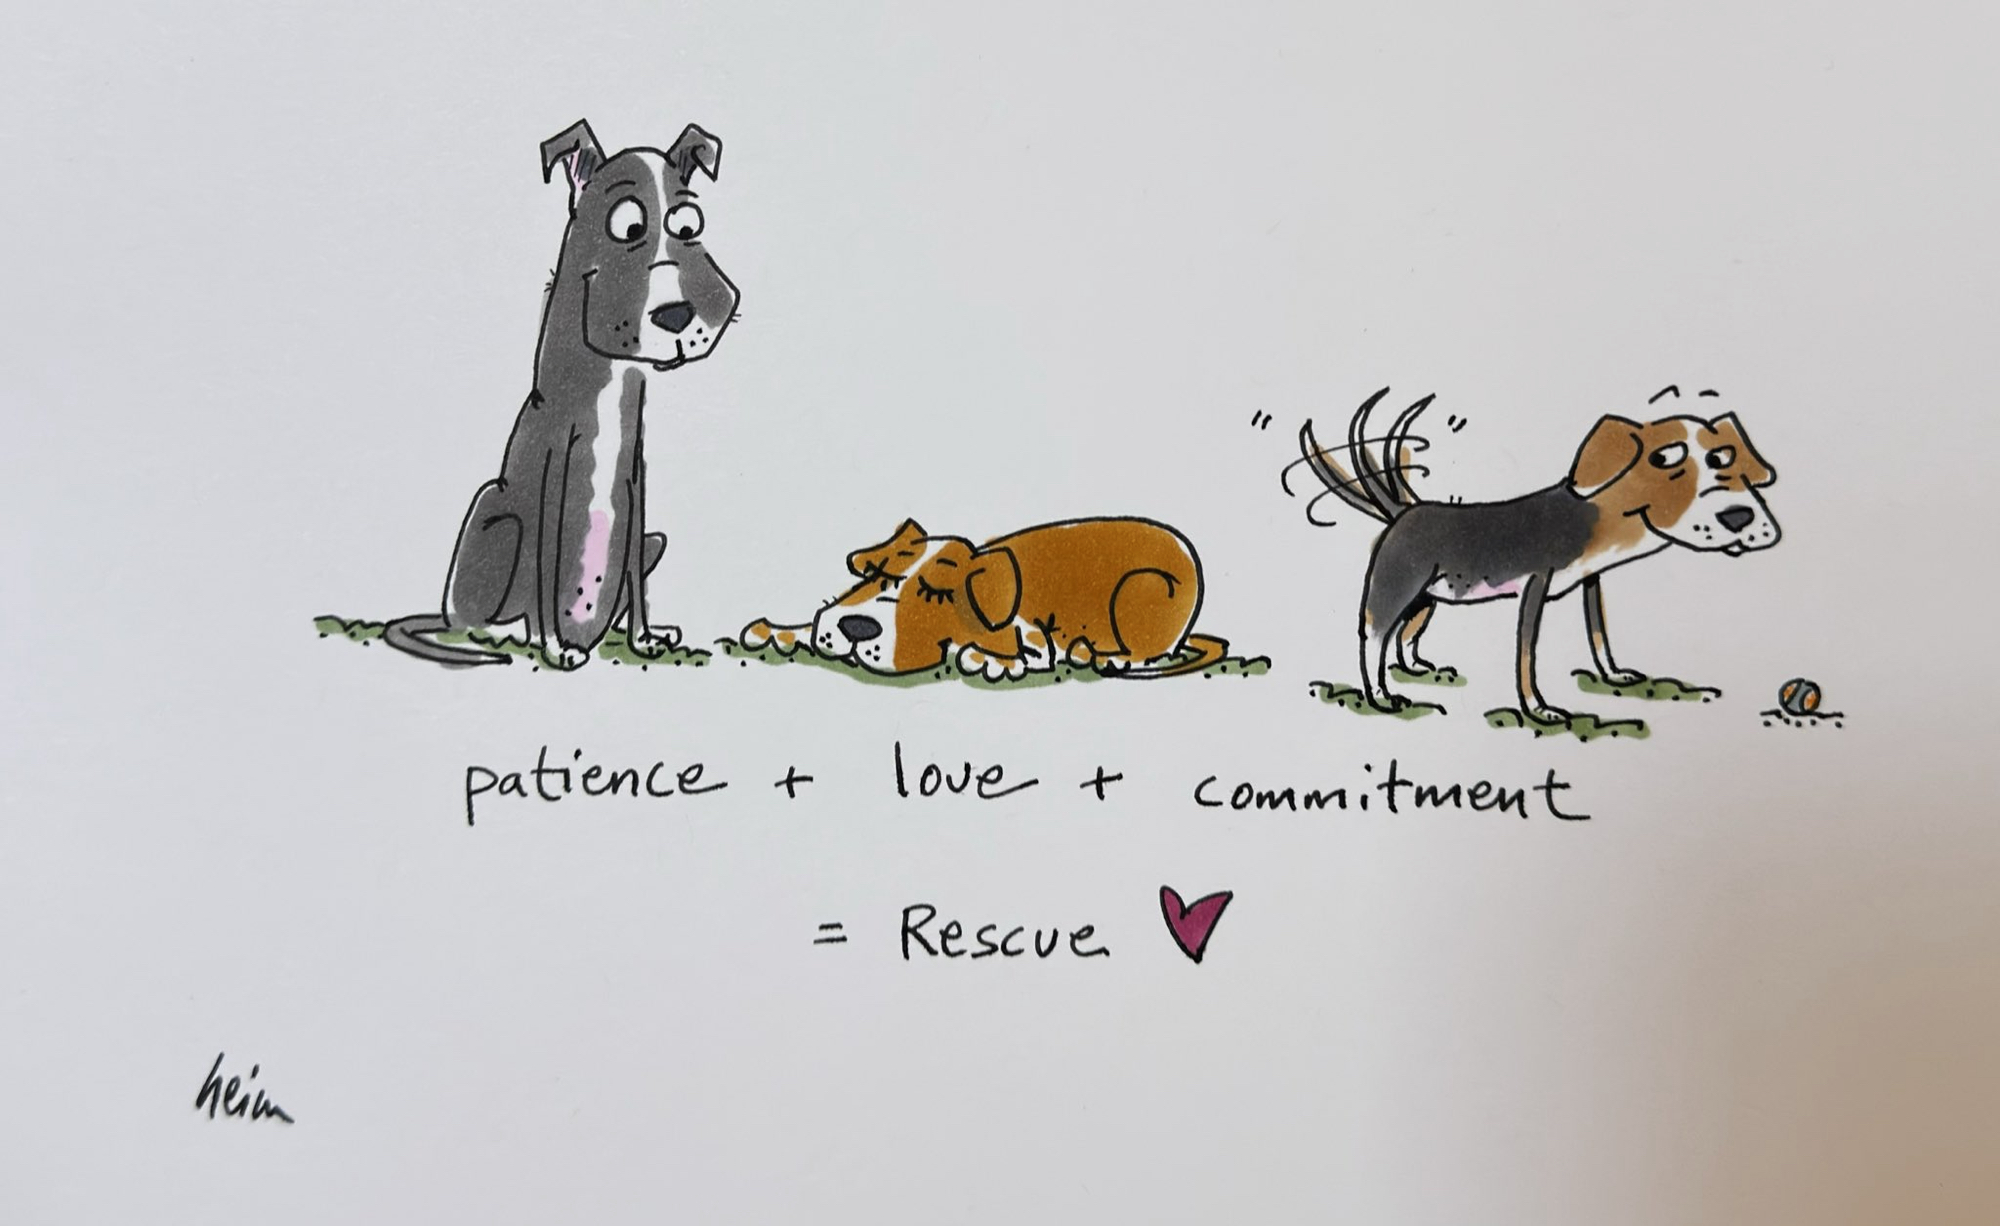 patience + love + commitment
= Rescue ♥
heim